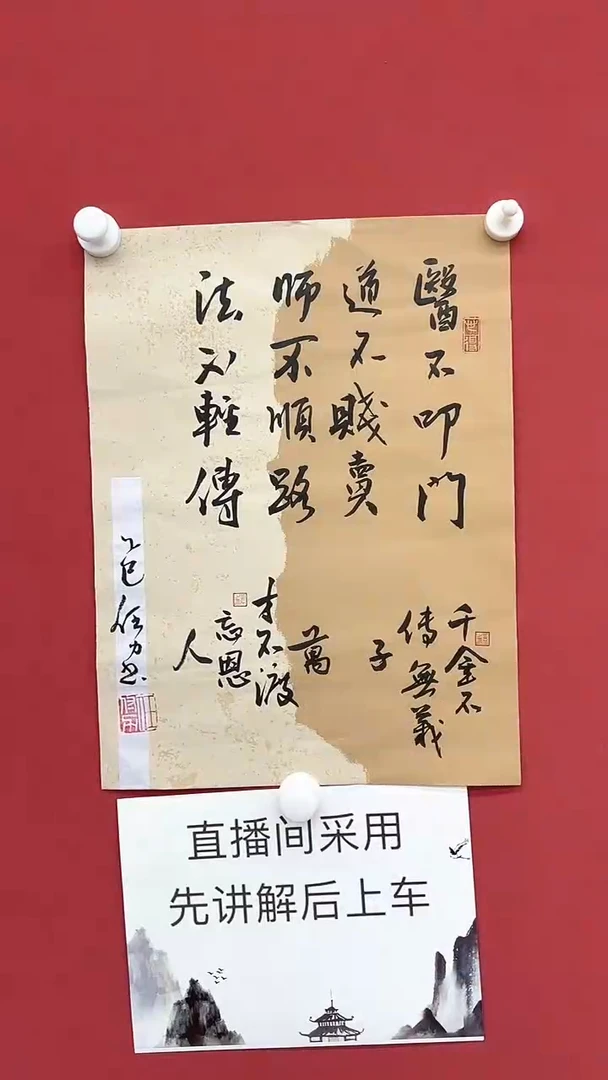 醫不叩門
道不賤賣
師不順路
法不輕傳
千金不
傳無義
子
萬
才不渡
忘恩
人
直播间采用
先讲解后上车